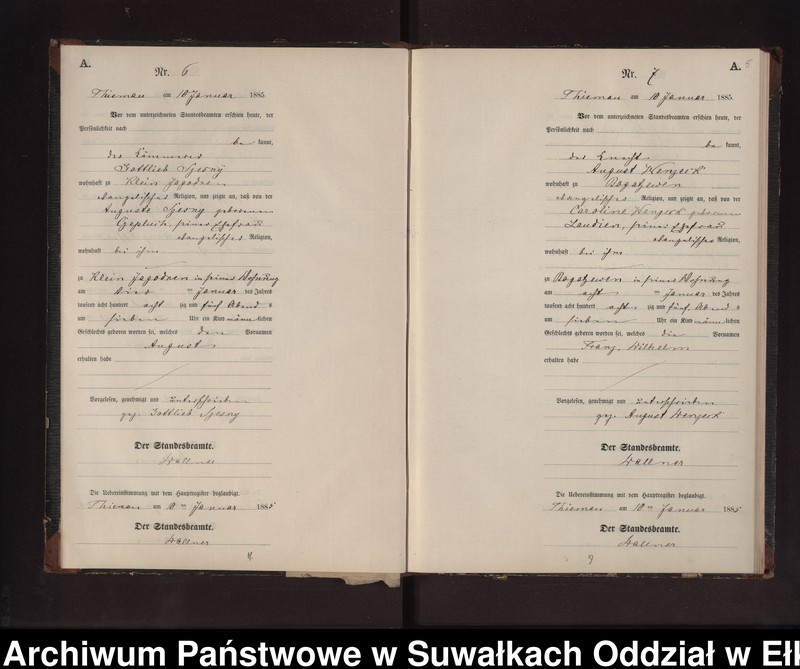 A.
Nr. 6
Thiemau am 10 Januar 1885.
Vor dem unterzeichneten Standesbeamten erschien heute, der
Persönlichkeit nach
be kannt,
der Kämmerer
Gottlieb
wohnhaft zu Klein Jagodnen
evangelischer Religion, und zeigte an, daß von der
Auguste geborenen
seiner Ehefrau
evangelischer Religion,
wohnhaft bei ihm
zu Klein Jagodnen in seiner Wohnung
am ten Januar des Jahres
tausend acht hundert acht zig und fünf Abend s
um sieben Uhr ein Kind männ lichen
Geschlechts geboren worden sei, welches den Vornamen
August
erhalten habe
Vorgelesen, genehmigt und unterschrieben
gez. Gottlieb
Der Standesbeamte.
Wallner
Die Uebereinstimmung mit dem Hauptregister beglaubigt.
Thiemau am 10 ten Januar 1885
Der Standesbeamte.
Wallner
A.
Nr. 7
Thiemau am 10 Januar 1885.
Vor dem unterzeichneten Standesbeamten erschien heute, der
Persönlichkeit nach
be kannt,
der Knecht
August
wohnhaft zu Bogatzewen
evangelischer Religion, und zeigte an, daß von der
Caroline geborenen
Laudien, seiner Ehefrau
evangelischer Religion,
wohnhaft bei ihm
zu Bogatzewen in seiner Wohnung
am acht ten Januar des Jahres
tausend acht hundert acht zig und fünf Abend s
um sieben Uhr ein Kind männ lichen
Geschlechts geboren worden sei, welches die Vornamen
Franz, Wilhelm
erhalten habe
Vorgelesen, genehmigt und unterschrieben
gez. August
Der Standesbeamte.
Wallner
Die Uebereinstimmung mit dem Hauptregister beglaubigt.
Thiemau am 10 ten Januar 1885
Der Standesbeamte.
Wallner
Archiwum Państwowe w Suwałkach Oddział w Eł